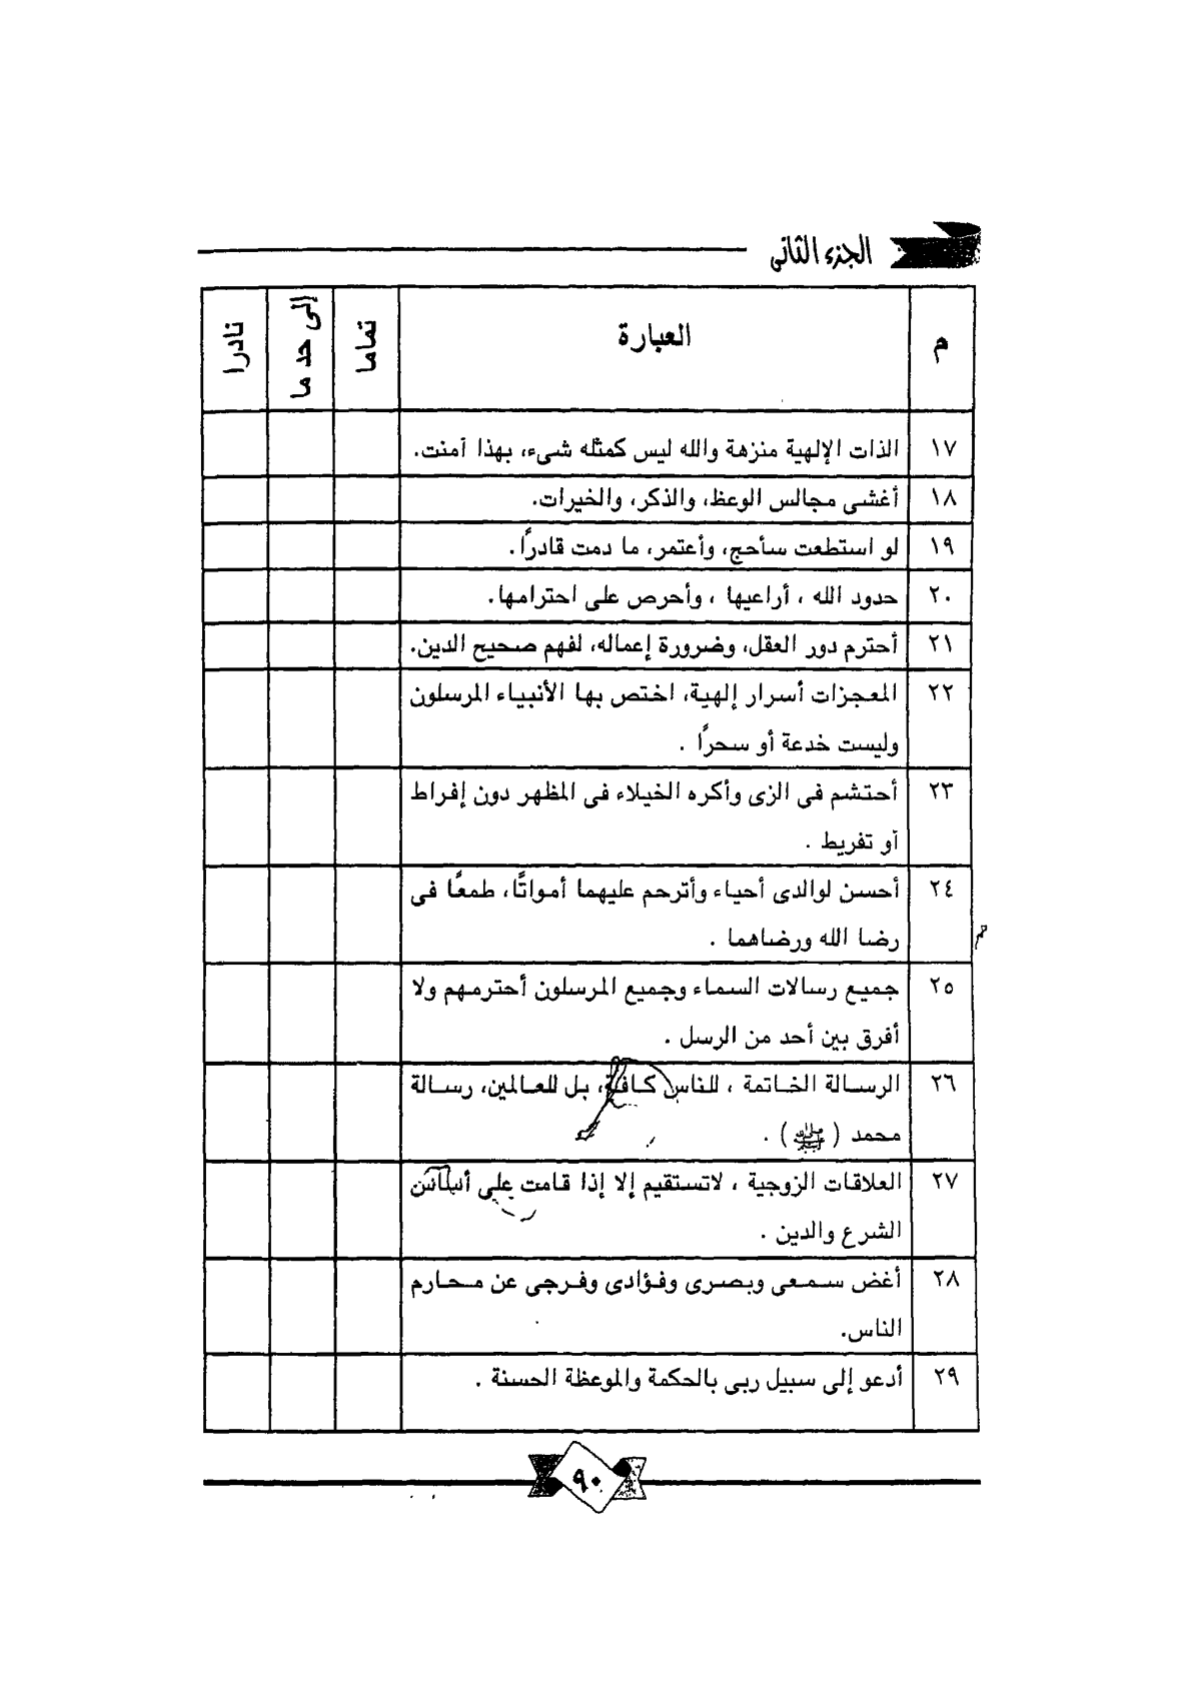 الجزء الثانى
م العبارة تماما إلى حد ما نادرا
١٧ الذات الإلهية منزهة والله ليس كمثله شىء، بهذا آمنت.
١٨ أغشى مجالس الوعظ، والذكر، والخيرات.
١٩ لو استطعت سأحج، وأعتمر، ما دمت قادرًا.
٢٠ حدود الله ، أراعيها ، وأحرص على احترامها.
٢١ أحترم دور العقل، وضرورة إعماله، لفهم صحيح الدين.
٢٢ المعجزات أسرار إلهية، اختص بها الأنبياء المرسلون
وليست خدعة أو سحرًا .
٢٣ أحتشم فى الزى وأكره الخيلاء فى المظهر دون إفراط
أو تفريط .
٢٤ أحسن لوالدى أحياء وأترحم عليهما أمواتًا، طمعًا فى
رضا الله ورضاهما .
٢٥ جميع رسالات السماء وجميع المرسلون أحترمهم ولا
أفرق بين أحد من الرسل .
٢٦ الرسالة الخاتمة ، للناس كافة، بل للعالمين، رسالة
محمد (ﷺ) .
٢٧ العلاقات الزوجية ، لاتستقيم إلا إذا قامت على أساس
الشرع والدين .
٢٨ أغض سمعى وبصرى وفؤادى وفرجى عن محارم
الناس.
٢٩ أدعو إلى سبيل ربى بالحكمة والموعظة الحسنة .
٩٠